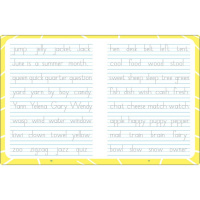 jump jelly jacket jack
June is a summer month.
queen quick quarter question
yard yarn by boy candy
Yam Yelena Stacy Wendy
weep wind water window
towel clown towel yellow
zoo zigzag jazz quiz
hen desk belt left tent
cool food wood stood
sweet sheep sleep tree green
fish dish wish crash fresh
chat cheese match watch
apple happy puppy pepper
mail train brain fairy
bowl slow snow owner